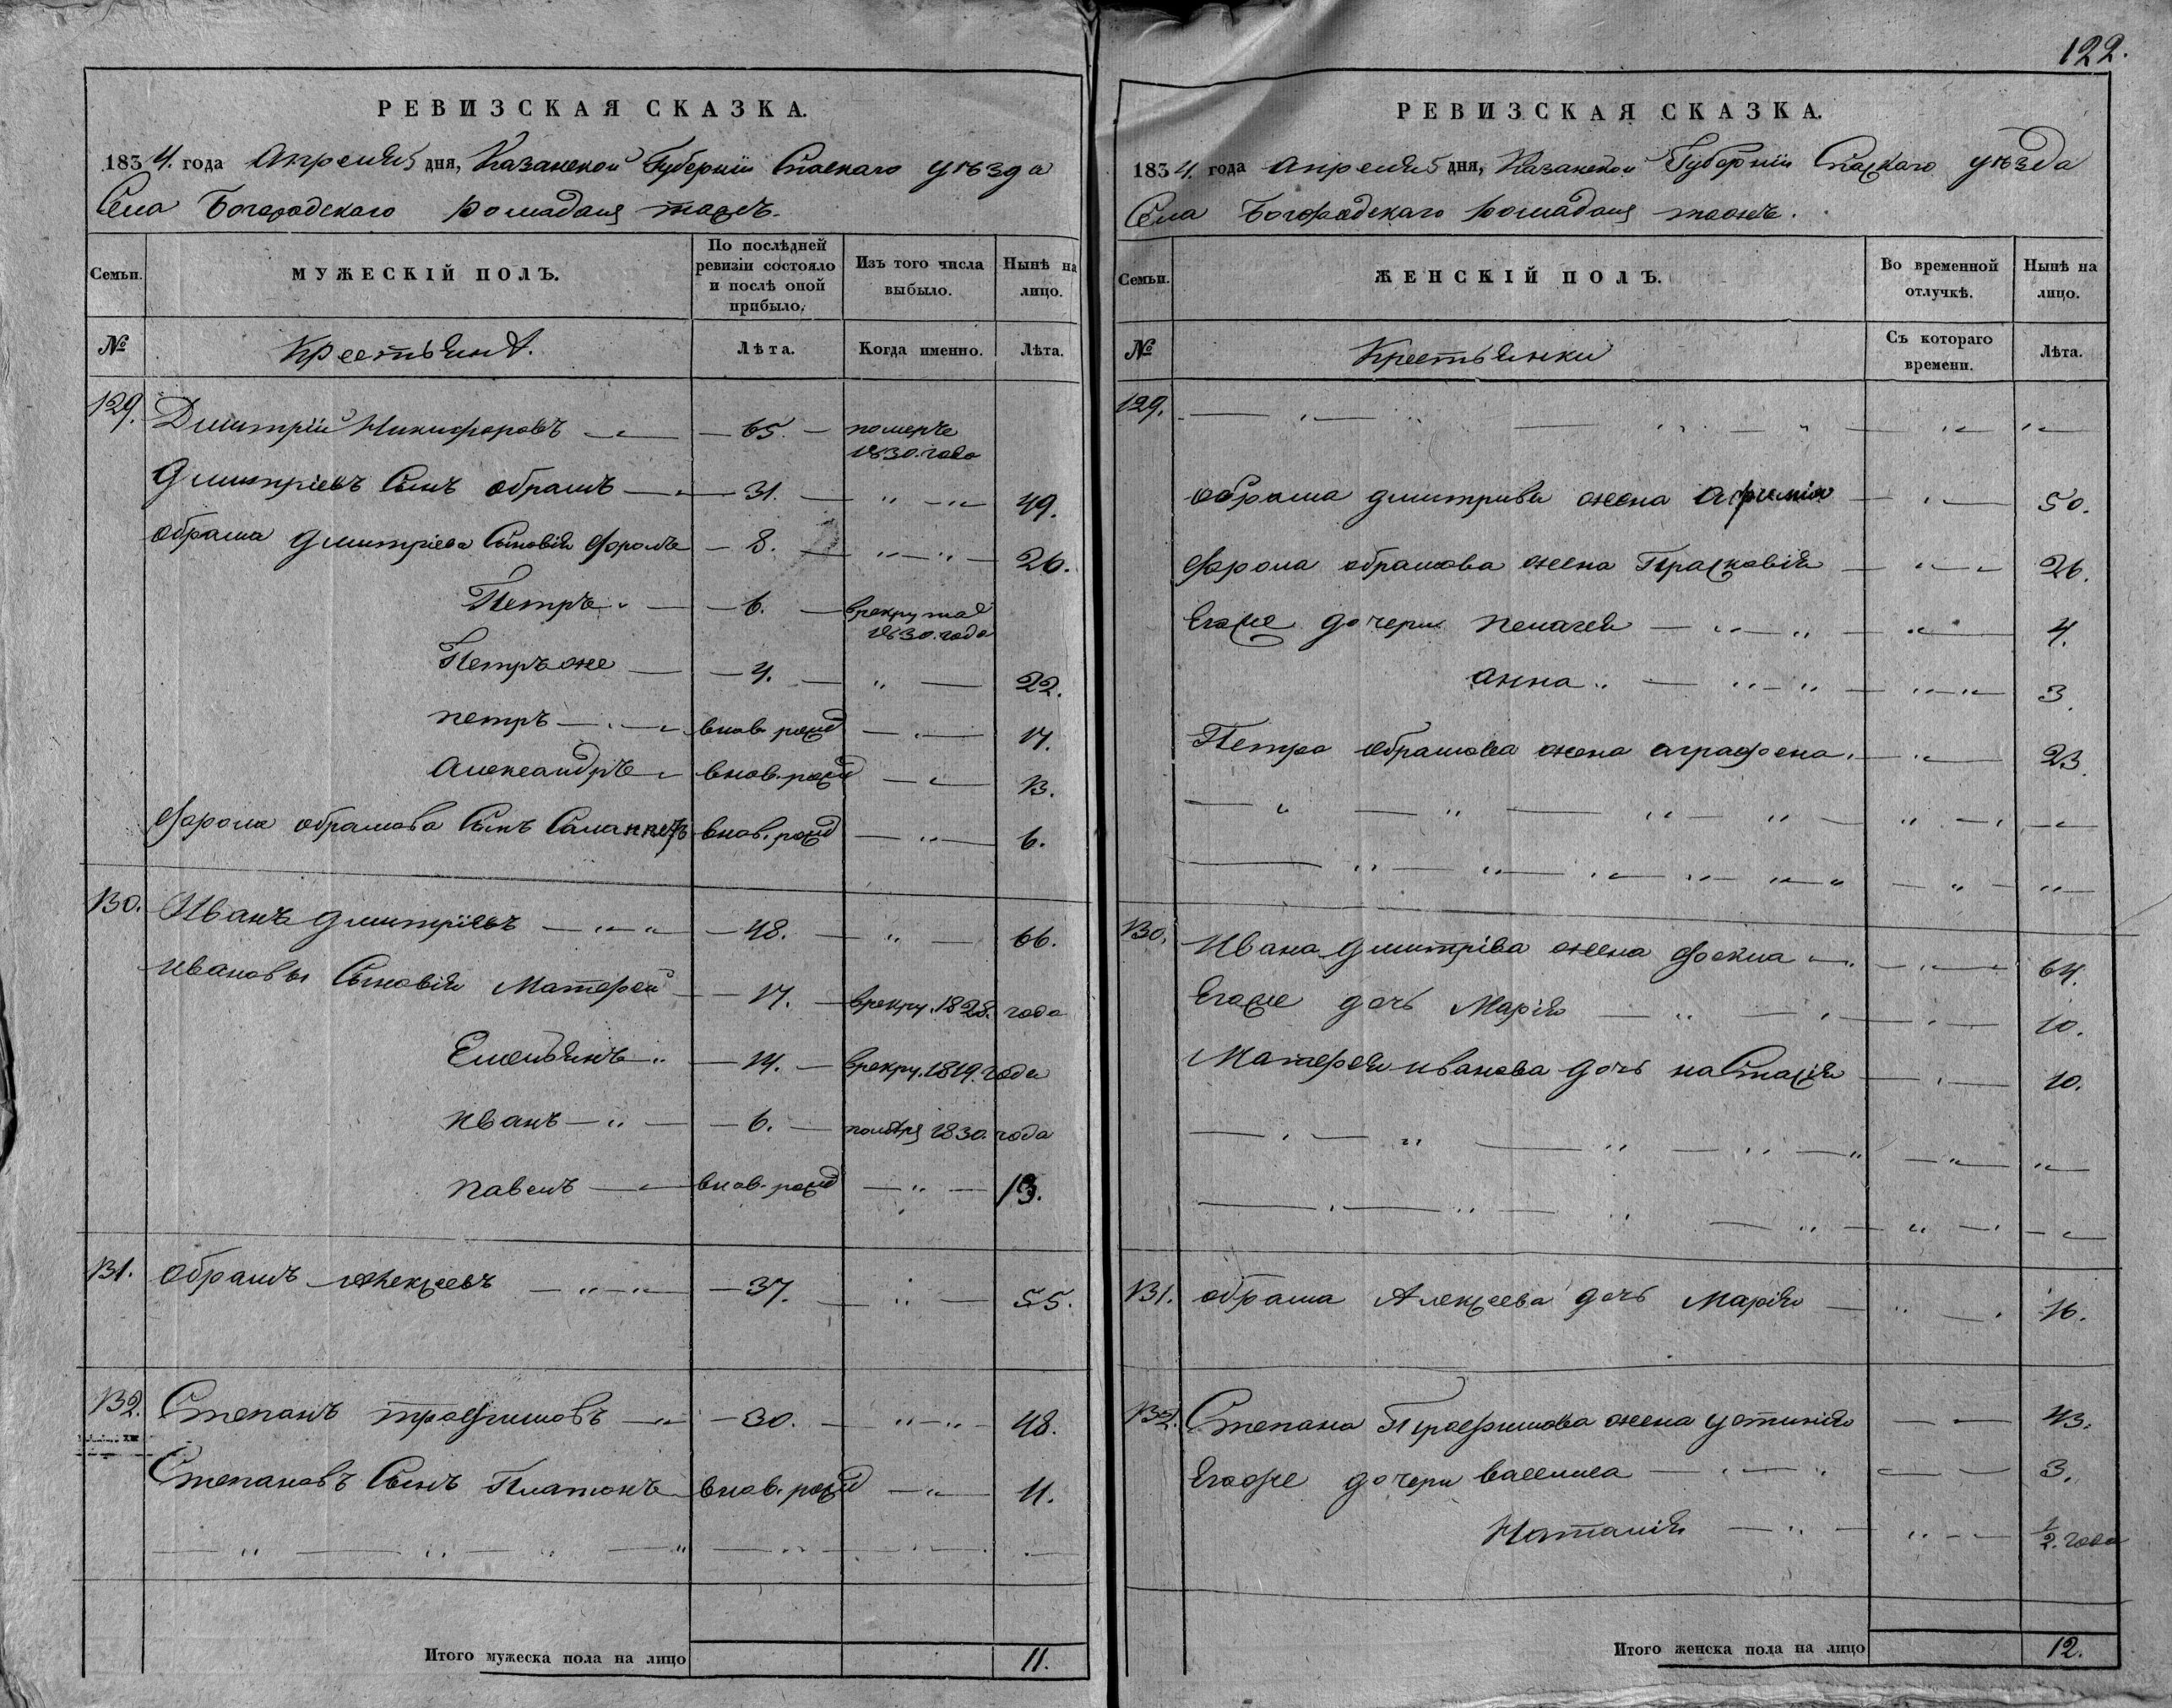 122.
РЕВИЗСКАЯ СКАЗКА.
1834. года Апреля 5 дня, Казанской Губерніи Спаскаго уѣзда
Села Богородскаго Ромадана тожъ.
Семьи. МУЖЕСКІЙ ПОЛЪ. По послѣдней ревизіи состояло и послѣ оной прибыло. Изъ того числа выбыло. Нынѣ на лицо.
№ Крестьянѣ. Лѣта. Когда именно. Лѣта.
129. Дмитрій Никифоровъ 65. померъ 1830. года
Дмитріевъ Сынъ обрамъ 31. 49.
обрама дмитріева Сыновія форолъ 8. 26.
Петръ 6. врекруты 1830. года
Петръ же 4. 22.
петръ внов. рожд 17.
Александръ внов. рожд 13.
форола обрамова Сынъ внов. рожд 6.
130. Иванъ дмитріевъ 48. 66.
ивановы Сыновія Матфей 17. врекру. 1828. года
Емельянъ 14. врекру. 1819. года
иванъ 6. 1830. года
павелъ внов. рожд 13.
131. обрамъ Алексеевъ 37. 55.
132. Степанъ трофимовъ 30. 48.
Степановъ Сынъ Платонъ внов. рожд 11.
Итого мужеска пола на лицо 11.
РЕВИЗСКАЯ СКАЗКА.
1834. года апреля 5 дня, Казанской Губерніи Спаскаго уѣзда
Села Богородскаго Ромадана тожъ.
Семьи. ЖЕНСКІЙ ПОЛЪ. Во временной отлучкѣ. Нынѣ на лицо.
№ Крестьянки Съ котораго времени. Лѣта.
129.
обрама дмитрива жена 50.
форола обрамова жена Прасковія 26.
Егоже дочери пелагея 4.
анна 3.
Петра обрамова жена аграфена 23.
130. Ивана дмитріва жена фокла 64.
Егоже дочь Марія 10.
Матфея иванова дочь настасія 10.
131. обрама Алексеева дочь марія 16.
132. Степана Трофимова жена устинія 43.
Егоже дочери василиса 3.
Наталія ½. года
Итого женска пола на лицо 12.